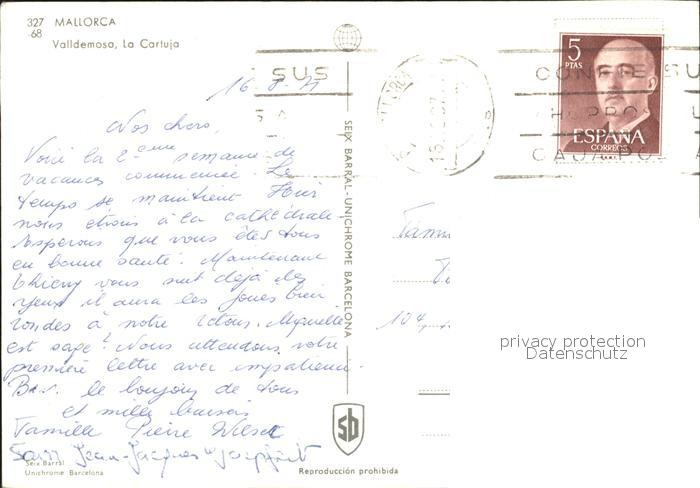 327 MALLORCA
-68
Valldemosa, La Cartuja
5
PTAS
ESPAÑA
CORREOS
SUS
CONFIE SU
AHORROS
CAJA POSTAL
16-8-71
Nos chers,
Voici la 2eme semaine de
vacances commencée. Le
temps se maintient Hier
nous étions à la cathédrale.
Espérons que vous êtes tous
en bonne santé. Maintenant
Thierry vous suit déjà des
yeux il aura les joues bien
rondes à notre retour.
est sage? Nous attendons votre
première lettre avec impatience.
le bonjour de tous
et mille baisers
Famille Pierre
Jean-Jacques
SEIX BARRAL - UNICHROME BARCELONA
104
privacy protection
Datenschutz
sb
Seix Barral
Unichrome Barcelona
Reproducción prohibida